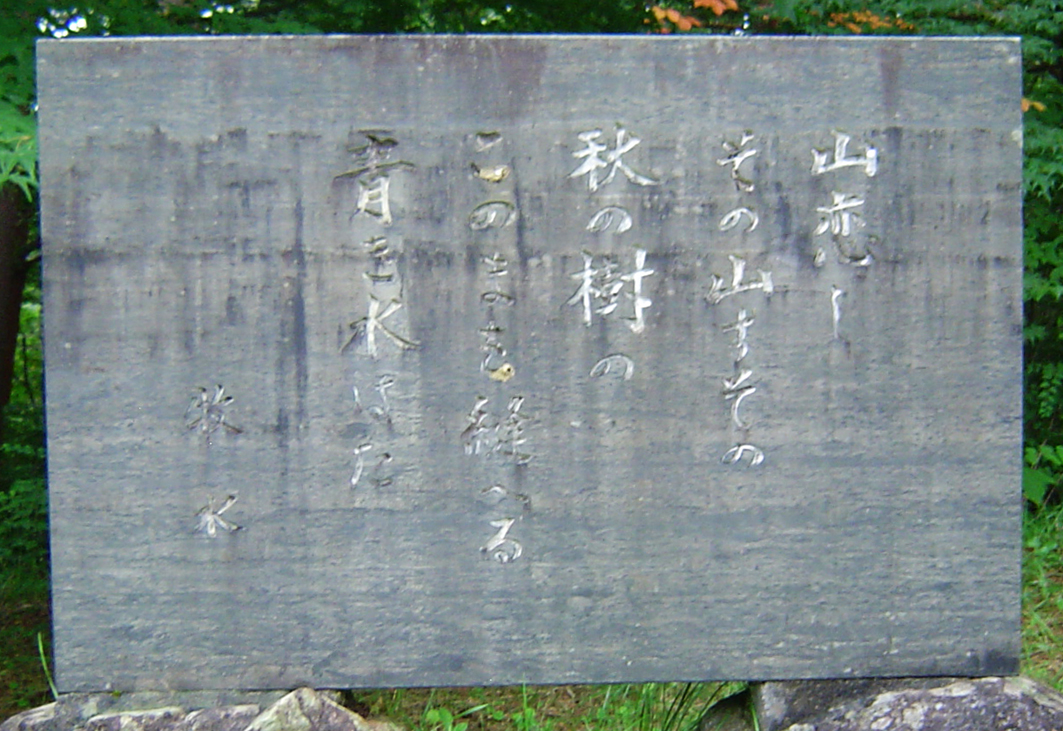 山恋し
その山すその
秋の樹の
このまのを縫へる
青き水はた
牧水